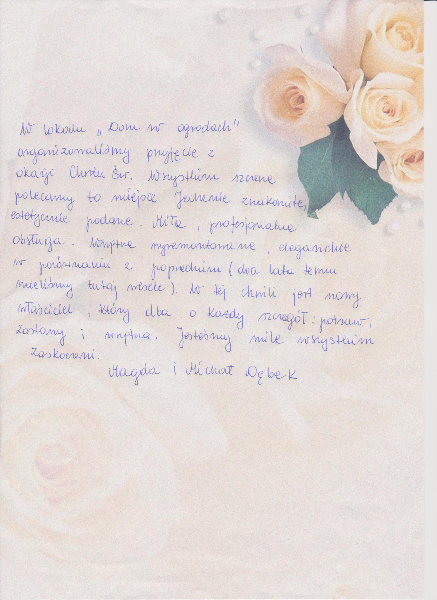 W lokalu „Dom w ogrodach"
organizowaliśmy przyjęcie z
okazji Chrztu Św. Wszystkim szczerze
polecamy to miejsce. Jedzenie znakomite,
estetycznie podane. Miła, profesjonalna
obsługa. Wnętrze wyremontowane, eleganckie
w porównaniu z poprzednim (dwa lata temu
mieliśmy tutaj wesele). W tej chwili jest nowy
właściciel, który dba o każdy szczegół: potraw,
zastawy i wnętrza. Jesteśmy mile wszystkim
zaskoczeni.
Magda i Michał Dębek